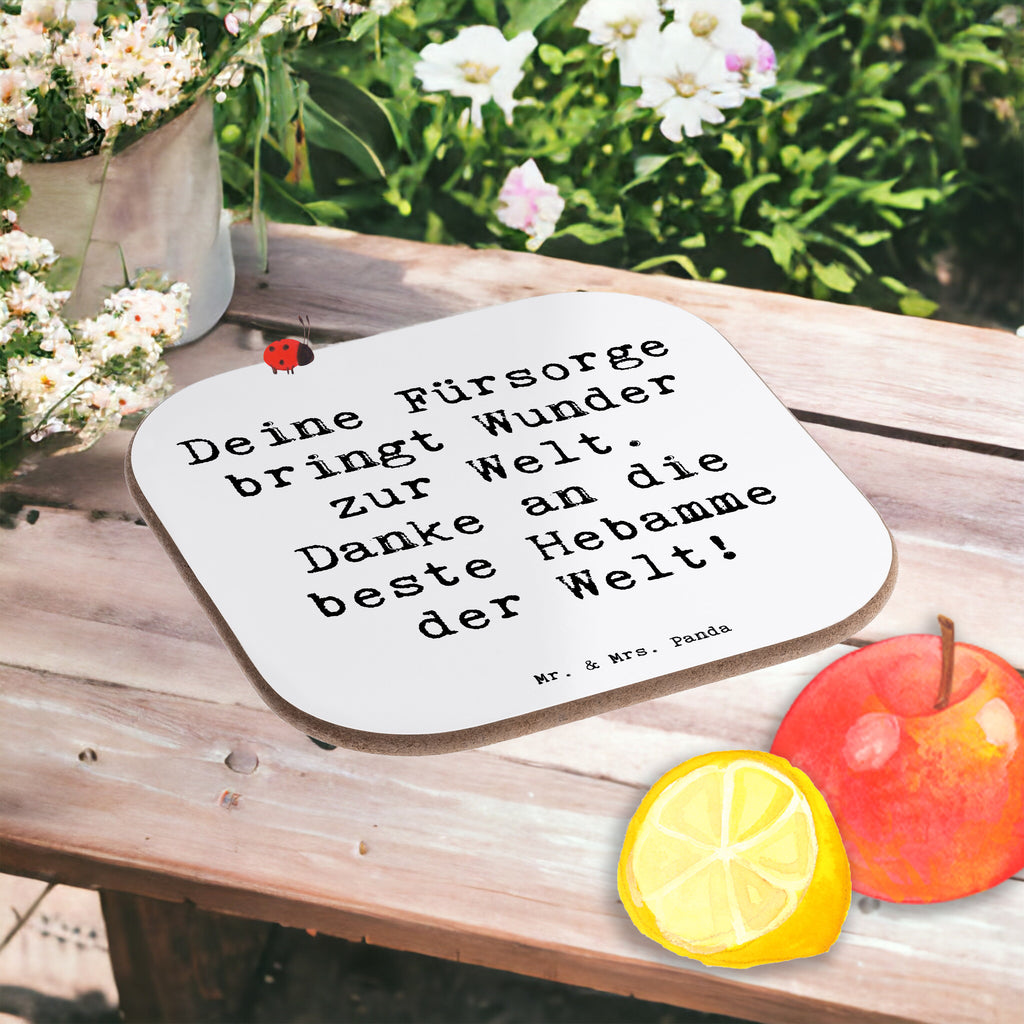 Deine Fürsorge
bringt Wunder
zur Welt.
Danke an die
beste Hebamme
der Welt!
Mr. & Mrs. Panda